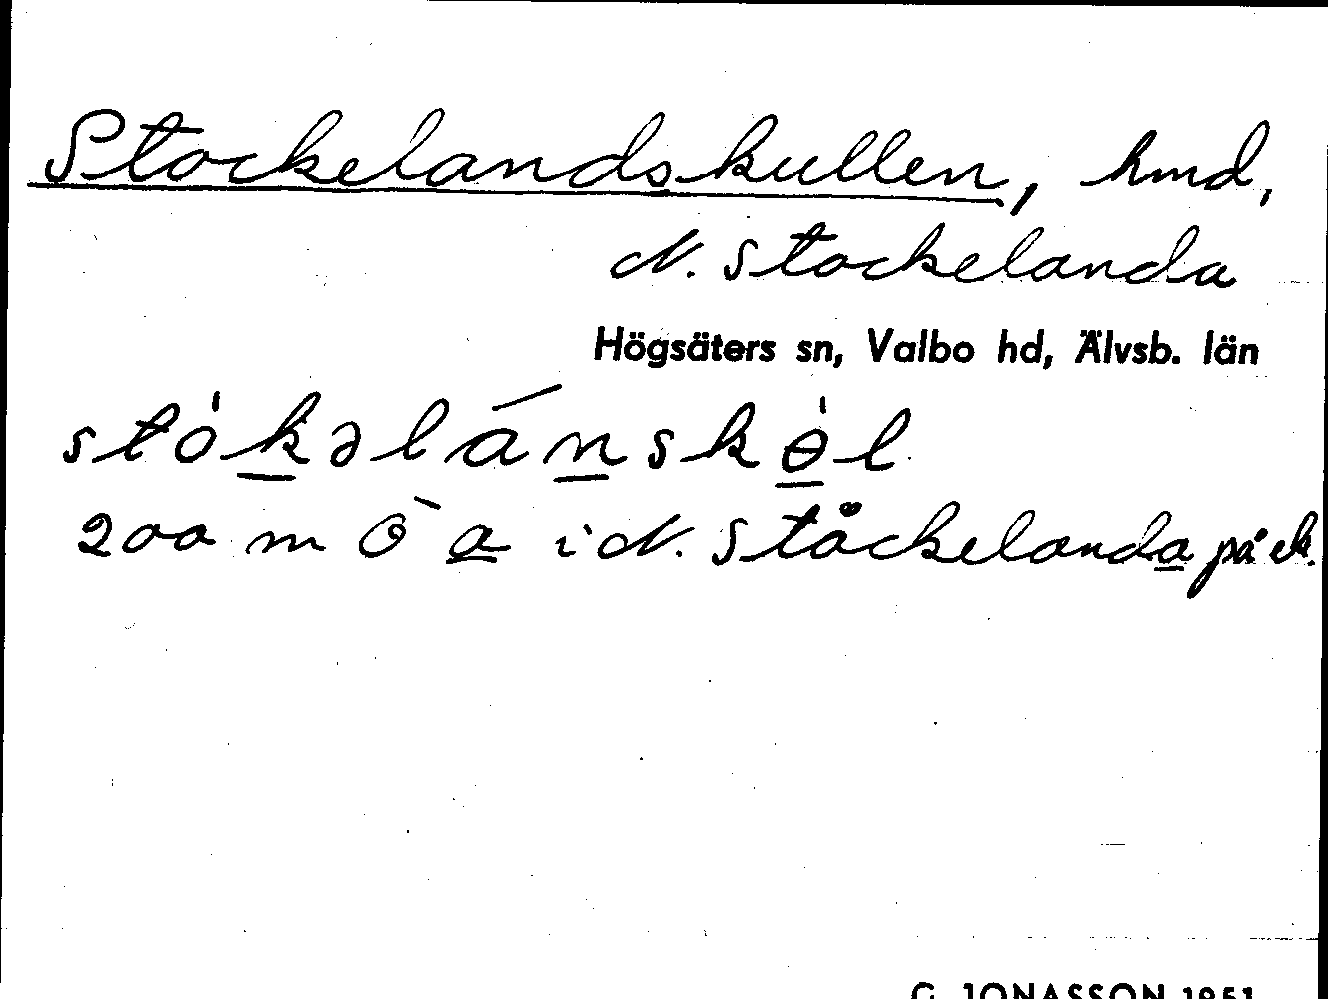 Stockelandskullen, hmd,
N. Stockelanda
Högsäters sn, Valbo hd, Älvsb. län
stòkəlánskὸl
200 m O a i N. Ståckelanda på ek.
G. JONASSON 1951